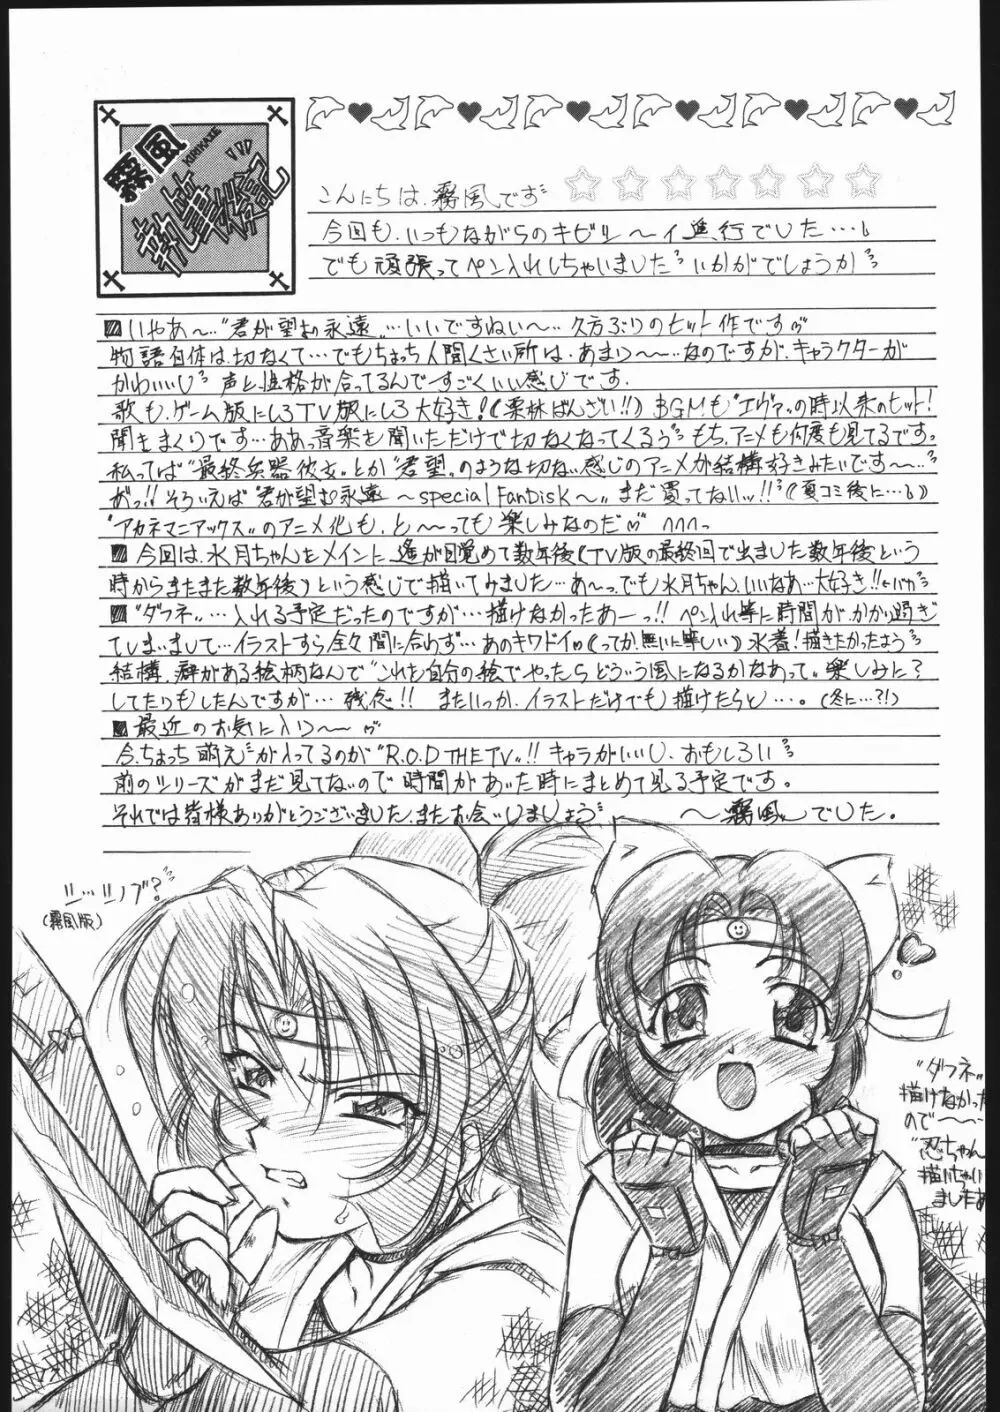 霧風
KIRIKAZE
執筆後記
こんにちは、霧風です
今回も、いつもながらのキビシ〜イ進行でした…
でも頑張ってペン入れしちゃいました いかがでしょうか
いやあ〜…"君が望む永遠"…いいですねい〜…久方ぶりのヒット作です
物語自体は、切なくて…でもちょっち人間くさい所は、あまり〜…なのですが、キャラクターが
かわいいし 声と性格が合ってるんですごくいい感じです。
歌も、ゲーム版にしろTV版にしろ大好き!(栗林ばんざい!!)BGMも"エヴァ"の時以来のヒット!
聞きまくりです…ああ、音楽を聞いただけで切なくなってくるぅ もち、アニメも何度も見てるです。
私ってば"最終兵器彼女"とか"君望"のような切ない感じのアニメが結構好きみたいです〜…
がっ!!そういえば"君が望む永遠 〜special FanDisk〜"まだ買ってないッ!!(夏コミ後に…)
"アカネマニアックス"のアニメ化も、と〜〜っても楽しみなのだ
今回は、水月ちゃんをメインに、遙が目覚めて数年後(TV版の最終回で出ました数年後という
時からまたまた数年後)という感じで描いてみました…あ〜っでも水月ちゃん、いいなあ…大好き!!←バカ
"ダフネ"…入れる予定だったのですが…描けなかったあーっ!! ペン入れ等に時間が、かかり過ぎ
てしまいまして…イラストすら全々間に合わず…あのキワドイの(ってか、無いに等しい)水着!描きたかったよう
結構、癖がある絵柄なんで"これを自分の絵でやったらどういう風になるかなあって"楽しみに?
してたりもしたんですが… 残念!! またいつか、イラストだけでも描けたらと…。(冬に…?!)
最近のお気に入り〜
今、ちょっち"萌え"が入ってるのが"R.O.D THE TV"!! キャラがいいし、おもしろい
前のシリーズがまだ見てないので時間があいた時にまとめて見る予定です。
それでは皆様ありがとうございました、またお会いしましょう 〜霧風〜でした。
シ…シノブ?
(霧風版)
"ダフネ"
描けなかった
ので〜…
"忍ちゃん
描いちゃい
ましたあ